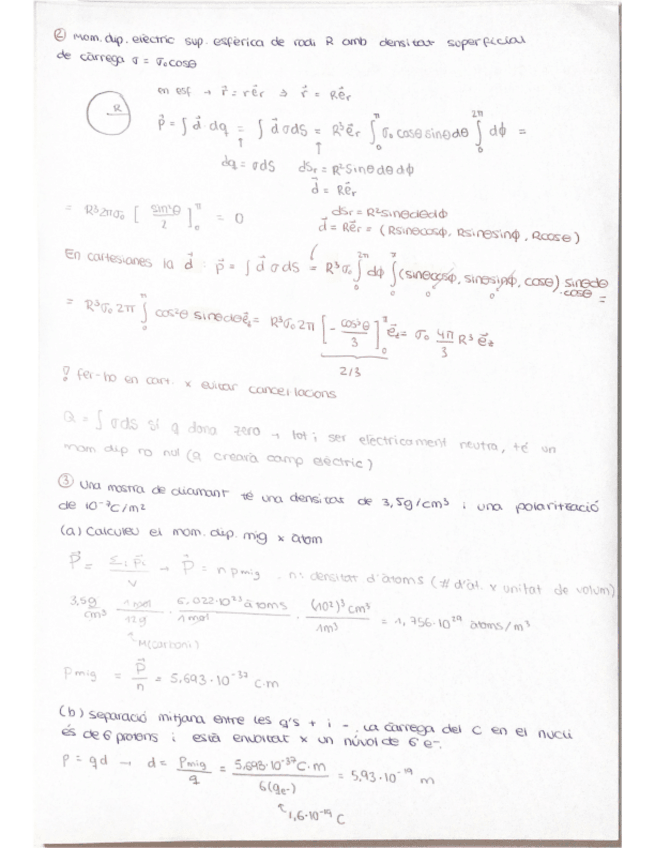 ② Mom. dip. elèctric sup. esfèrica de radi R amb densitat superficial
de càrrega σ = σ₀cosθ
en esf → r⃗ = re⃗r ⇒ r⃗ = Re⃗r
R
p⃗ = ∫ d⃗ · dq = ∫ d⃗ σdS = R³e⃗r ∫₀^π σ₀ cosθ sinθdθ ∫₀^2π dϕ =
dq = σdS dSr = R²sinθdθdϕ
d⃗ = Re⃗r
= R³2πσ₀ [ sin²θ / 2 ]₀^π = 0
dSr = R²sinθdθdϕ
d⃗ = Re⃗r = (Rsinθcosϕ, Rsinθsinϕ, Rcosθ)
En cartesianes la d⃗ : p⃗ = ∫ d⃗ σ dS = R³σ₀ ∫₀^2π dϕ ∫₀^π (sinθcosϕ, sinθsinϕ, cosθ) sinθdθ · cosθ =
0 0
= R³σ₀ 2π ∫₀^π cos²θ sinθdθ e⃗z = R³σ₀ 2π [ - cos³θ / 3 ]₀^π e⃗z = σ₀ 4π/3 R³ e⃗z
2/3
! fer-ho en cart. x evitar cancel·lacions
Q = ∫ σds si q dona zero → tot i ser elèctricament neutra, té un
mom dip no nul (q crearà camp elèctric)
③ Una mostra de diamant té una densitat de 3,5g/cm³ i una polarització
de 10⁻⁷C/m²
(a) Calculeu el mom. dip. mig x àtom
P⃗ = Σi p⃗i / V → P⃗ = n pmig . n: densitat d'àtoms (# d'àt. x unitat de volum)
3,5g/cm³ · 1 mol/12g · 6,022·10²³ àtoms/1 mol · (10²)³ cm³/1m³ = 1,756·10²⁹ àtoms/m³
↑ M(carboni)
pmig = P⃗/n = 5,693·10⁻³⁷ C·m
(b) separació mitjana entre les q's + i -. La càrrega del C en el nucli
és de 6 protons i està envoltat x un núvol de 6 e⁻.
p = qd → d = pmig/q = 5,693·10⁻³⁷C·m / 6(qe-) = 5,93·10⁻¹⁹ m
↑ 1,6·10⁻¹⁹ C